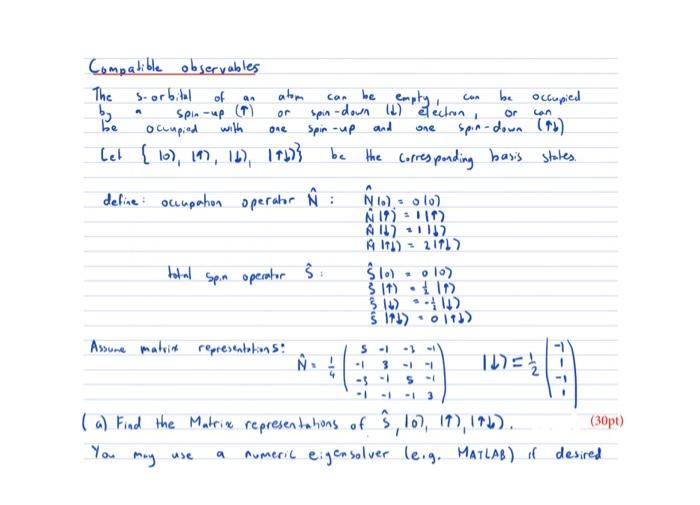 Compatible observables
The s-orbital of an atom can be empty, can be occupied
by a spin-up (↑) or spin-down (↓) electron, or can
be occupied with one spin-up and one spin-down (↑↓)
Let { |0⟩, |↑⟩, |↓⟩, |↑↓⟩} be the corresponding basis states.
define: occupation operator N̂ : N̂ |0⟩ = 0 |0⟩
N̂ |↑⟩ = 1 |↑⟩
N̂ |↓⟩ = 1 |↓⟩
N̂ |↑↓⟩ = 2 |↑↓⟩
total spin operator Ŝ : Ŝ |0⟩ = 0 |0⟩
Ŝ |↑⟩ = ½ |↑⟩
Ŝ |↓⟩ = -½ |↓⟩
Ŝ |↑↓⟩ = 0 |↑↓⟩
Assume matrix representations: N̂ = 1/4 ( 5 -1 -3 -1 |↓⟩ = 1/2 ( -1
-1 3 -1 -1 1
-3 -1 5 -1 -1
-1 -1 -1 3 ) 1 )
(a) Find the Matrix representations of Ŝ, |0⟩, |↑⟩, |↑↓⟩. (30pt)
You may use a numeric eigensolver (e.g. MATLAB) if desired